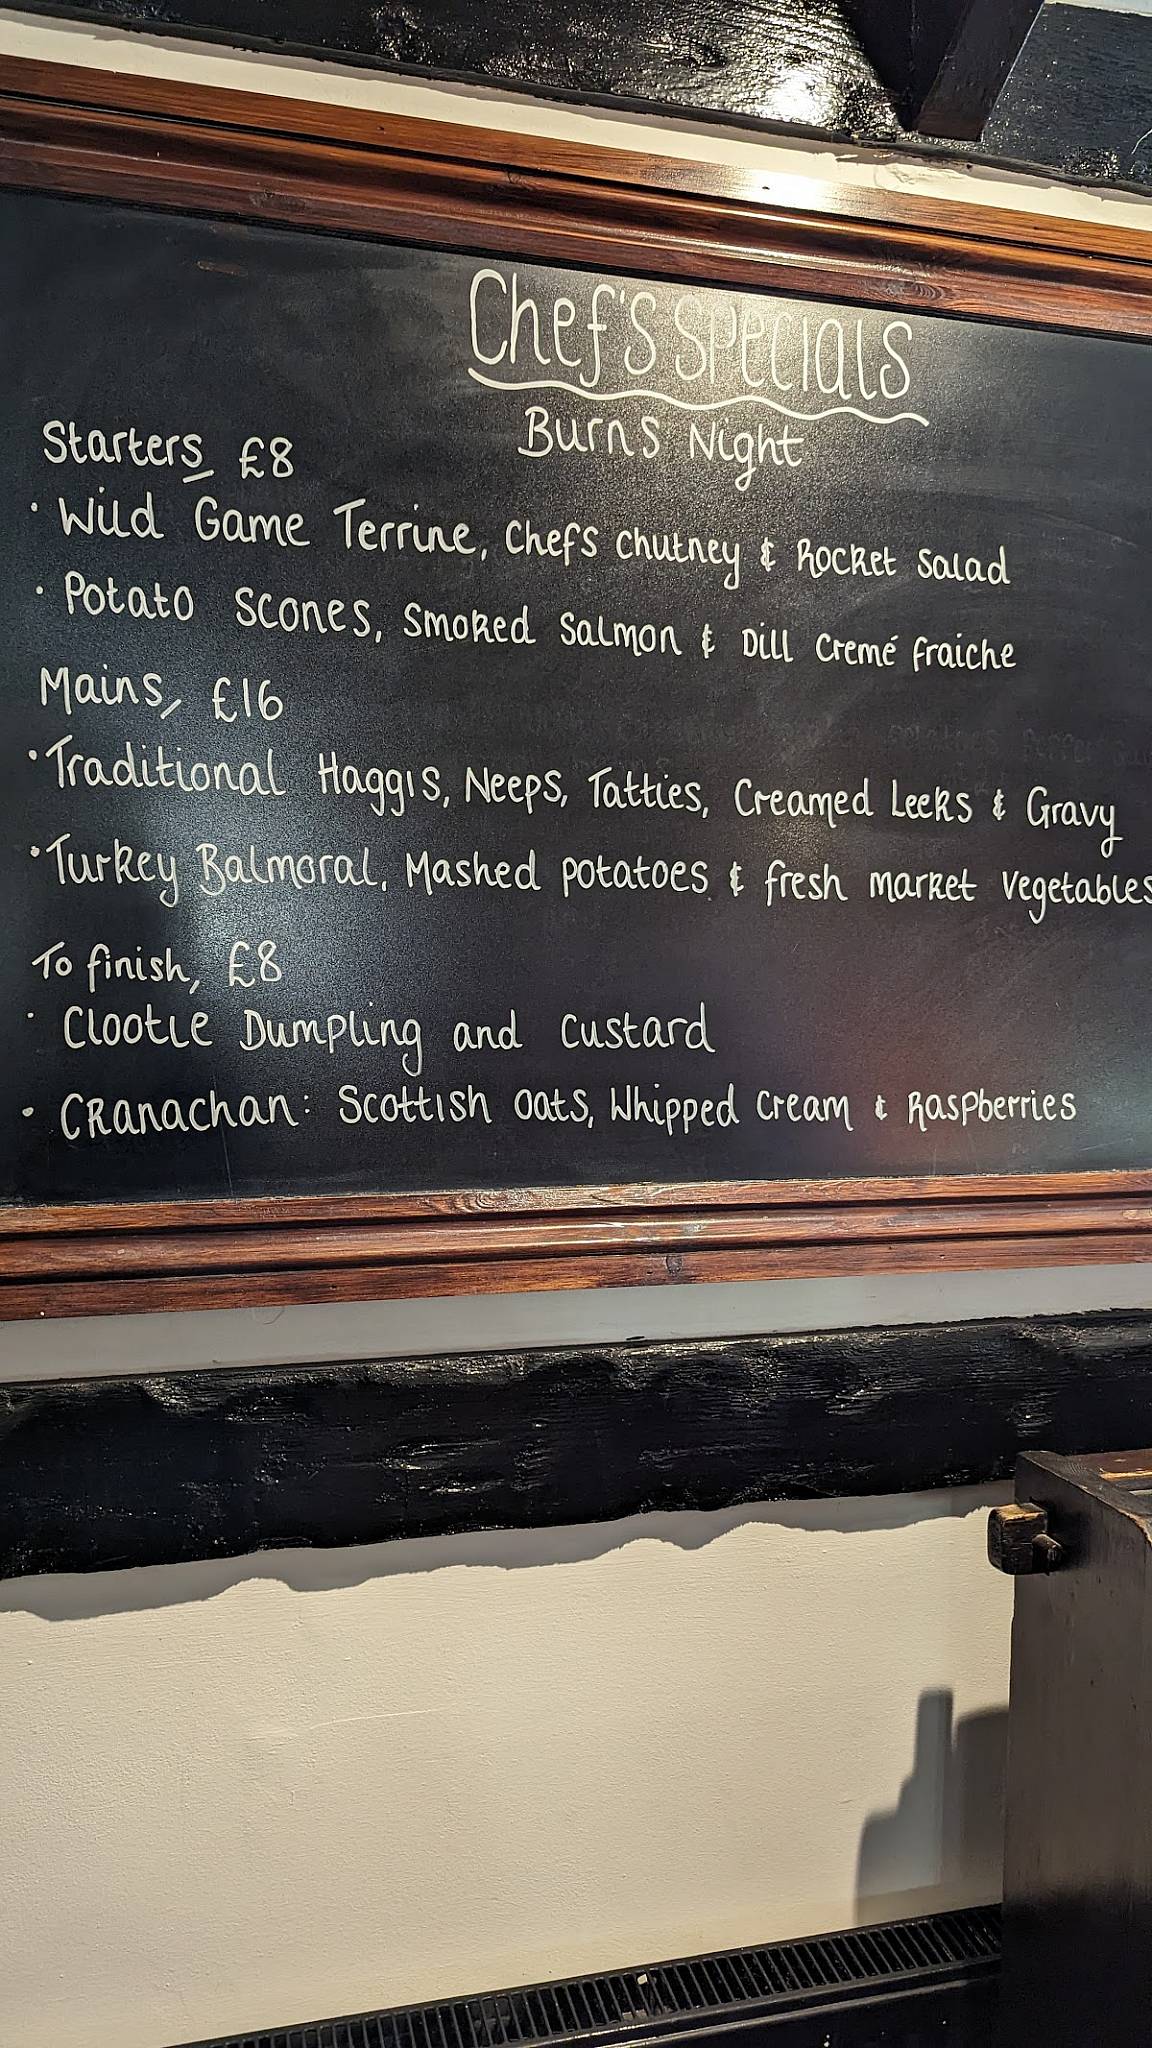 Chef's Specials
Burns Night
Starters, £8
· Wild Game Terrine, Chefs Chutney & Rocket Salad
· Potato Scones, Smoked Salmon & Dill Cremé fraiche
Mains, £16
· Traditional Haggis, Neeps, Tatties, Creamed Leeks & Gravy
· Turkey Balmoral, Mashed potatoes & fresh market vegetables
To finish, £8
· Clootie Dumpling and custard
· Cranachan: Scottish oats, Whipped cream & Raspberries